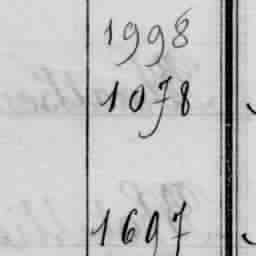 1998
1078
1697